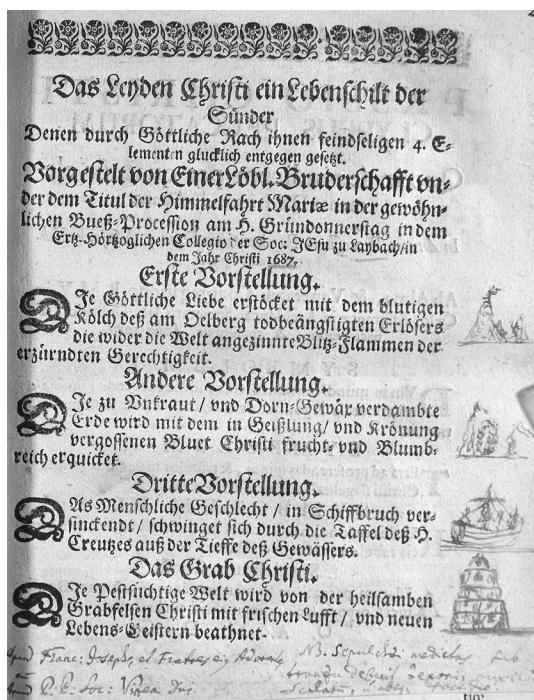 Das Leyden Christi ein Lebenschilt der
Sünder
Denen durch Göttliche Rach ihnen feindseligen 4. E-
lementen glucklich entgegen gesetzt.
Vorgestelt von Einer Löbl. Bruderschafft vn-
der dem Titul der Himmelfahrt Mariæ in der gewöhn-
lichen Bueß-Procession am H. Gründonnerstag in dem
Ertz-Hörtzoglichen Collegio der Soc: JEsu zu Laybach/in
dem Jahr Christi 1687.
Erste Vorstellung.
DJe Göttliche Liebe erstöcket mit dem blutigen
Kölch deß am Oelberg todbeängstigten Erlösers
die wider die Welt angezinnte Blitz-Flammen der
erzürndten Gerechtigkeit.
Andere Vorstellung.
DJe zu Vnkraut / vnd Dorn-Gewäx verdambte
Erde wird mit dem in Geißlung/ vnd Krönung
vergossenen Bluet Christi frucht- vnd Blumb-
reich erquicket.
Dritte Vorstellung.
DAs Menschliche Geschlecht / in Schiffbruch ver-
sinckendt / schwinget sich durch die Taffel deß H.
Creutzes auß der Tieffe deß Gewässers.
Das Grab Christi.
DJe Pestsüchtige Welt wird von der heilsamben
Grabfelsen Christi mit frischen Lufft / vnd neuen
Lebens-Geistern beathnet.
Franc: Joseph, et Fratres ei, NB. Sepulchri
P. P. Soc: